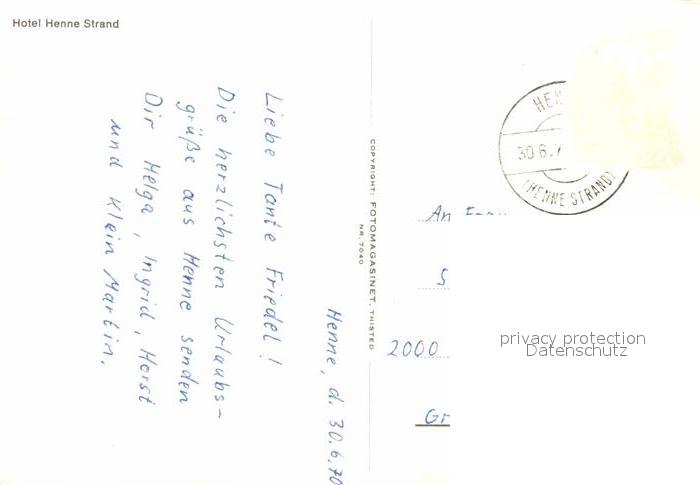 Hotel Henne Strand
Henne, d. 30.6.70
Liebe Tante Friedel!
Die herzlichsten Urlaubs-
grüße aus Henne senden
Dir Helga, Ingrid, Horst
und Klein Martin.
COPYRIGHT: FOTOMAGASINET, THISTED
NR. 7040
HEN
30.6.7
(HENNE STRAND)
An
S
2000
Gr
privacy protection
Datenschutz